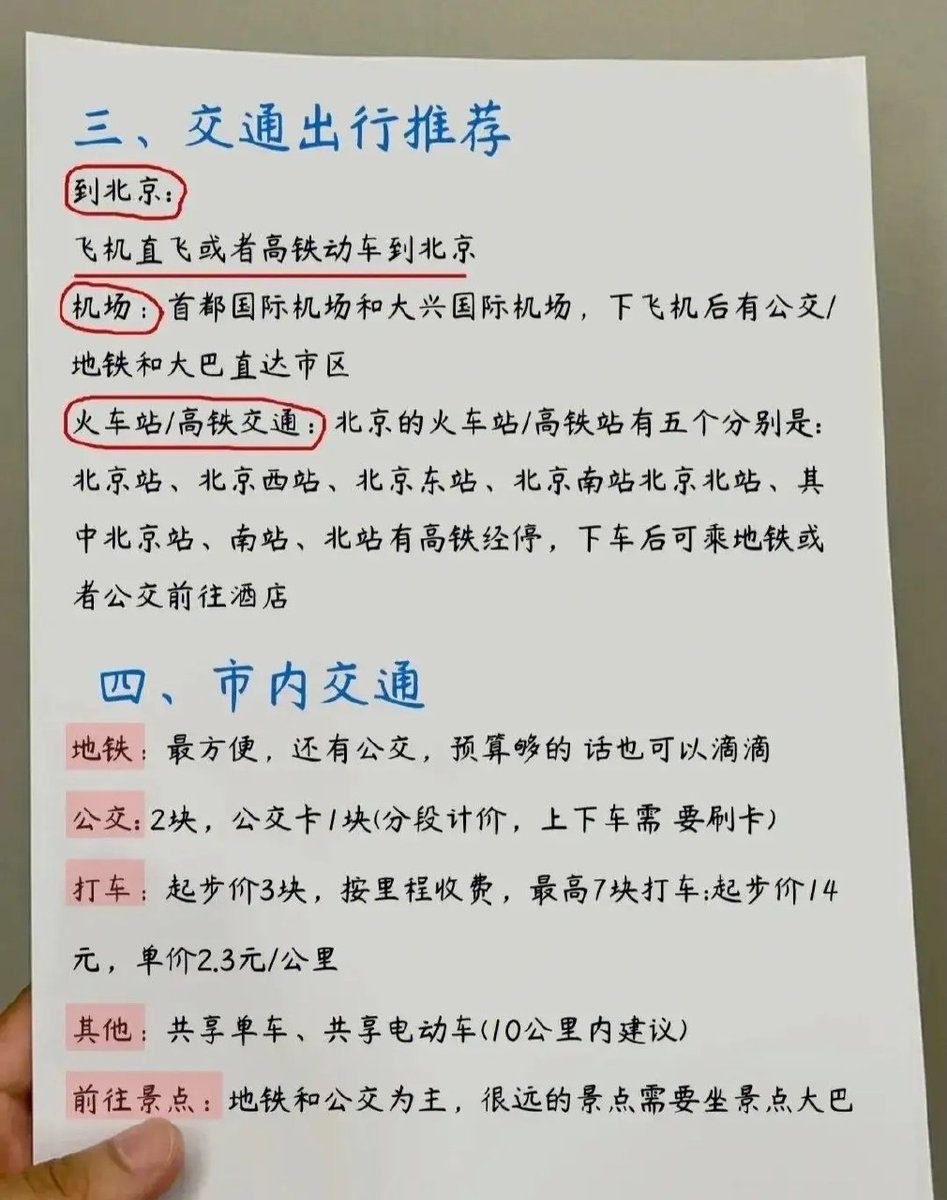 三、交通出行推荐
到北京：
飞机直飞或者高铁动车到北京
机场：首都国际机场和大兴国际机场，下飞机后有公交/
地铁和大巴直达市区
火车站/高铁交通：北京的火车站/高铁站有五个分别是：
北京站、北京西站、北京东站、北京南站北京北站、其
中北京站、南站、北站有高铁经停，下车后可乘地铁或
者公交前往酒店
四、市内交通
地铁：最方便，还有公交，预算够的 话也可以滴滴
公交：2块，公交卡1块(分段计价，上下车需 要刷卡)
打车：起步价3块，按里程收费，最高7块打车:起步价14
元，单价2.3元/公里
其他：共享单车、共享电动车(10公里内建议)
前往景点：地铁和公交为主，很远的景点需要坐景点大巴